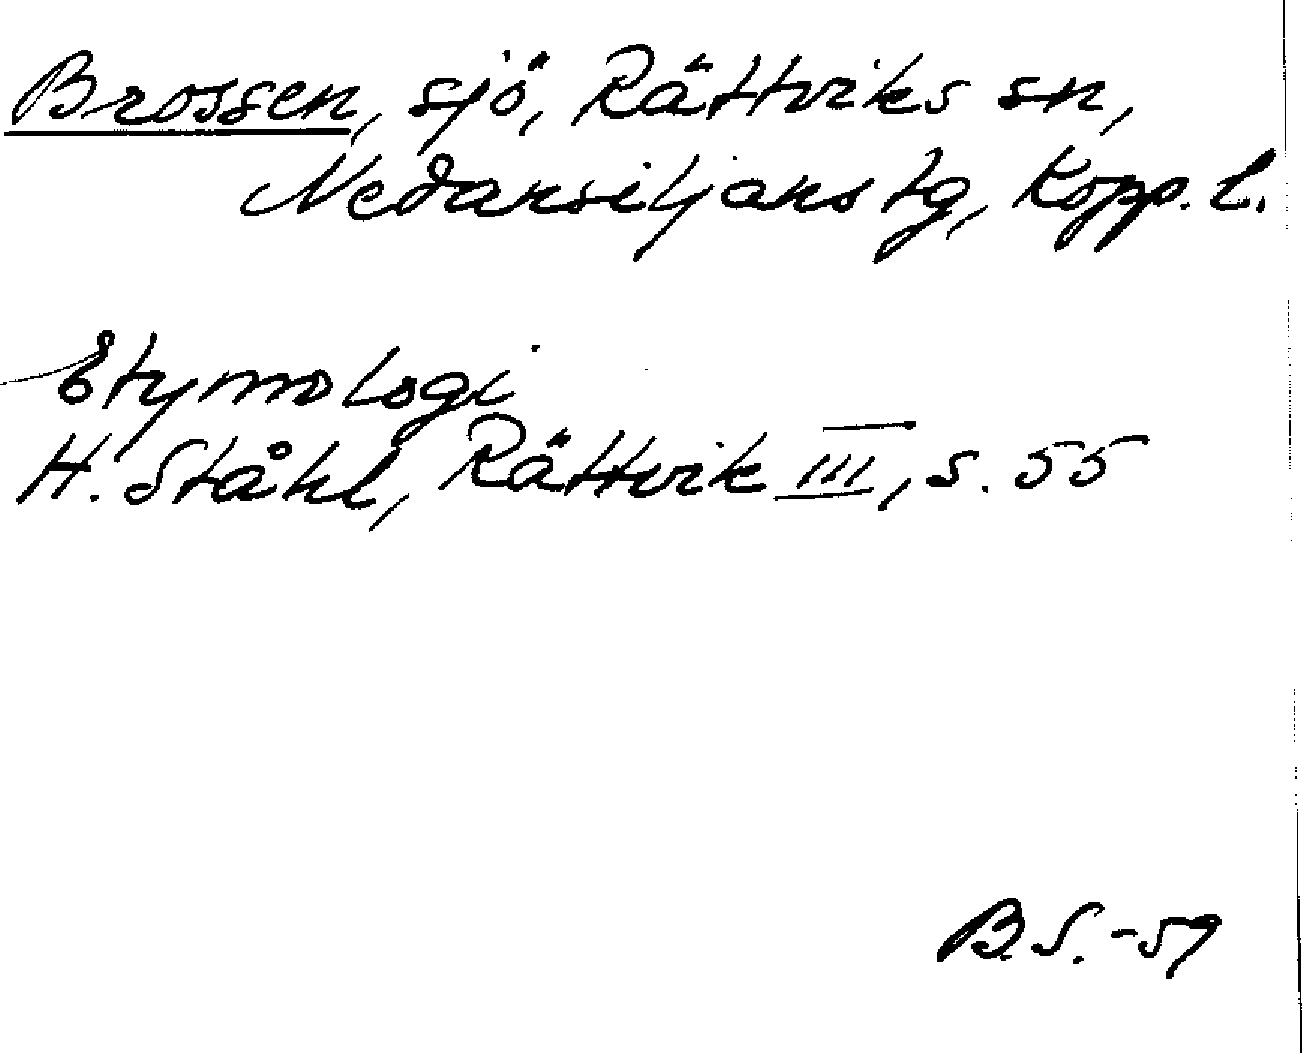 Brossen, sjö, Rättviks sn,
Nedansiljans tg, Kopp. l.
Etymologi
H. Ståhl, Rättvik III, s. 55
B.S. -59